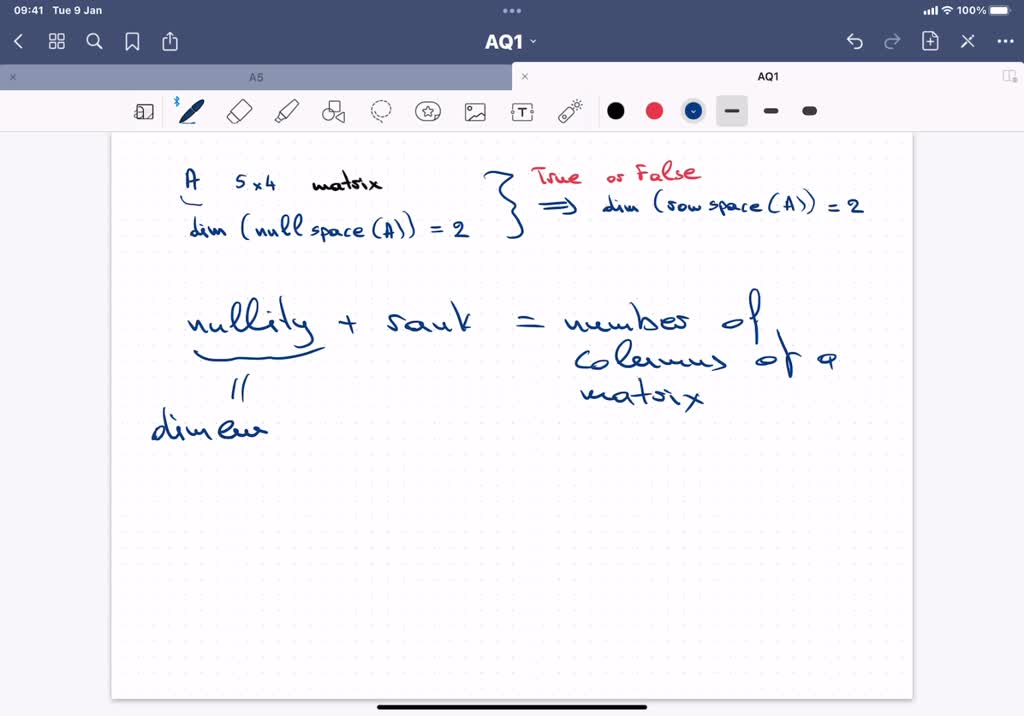 09:41 Tue 9 Jan
100%
AQ1
A5
AQ1
A 5x4 matrix
dim (null space (A)) = 2
True or False
⇒ dim (row space (A)) = 2
nullity + rank = number of
columns of a
matrix
||
dimen